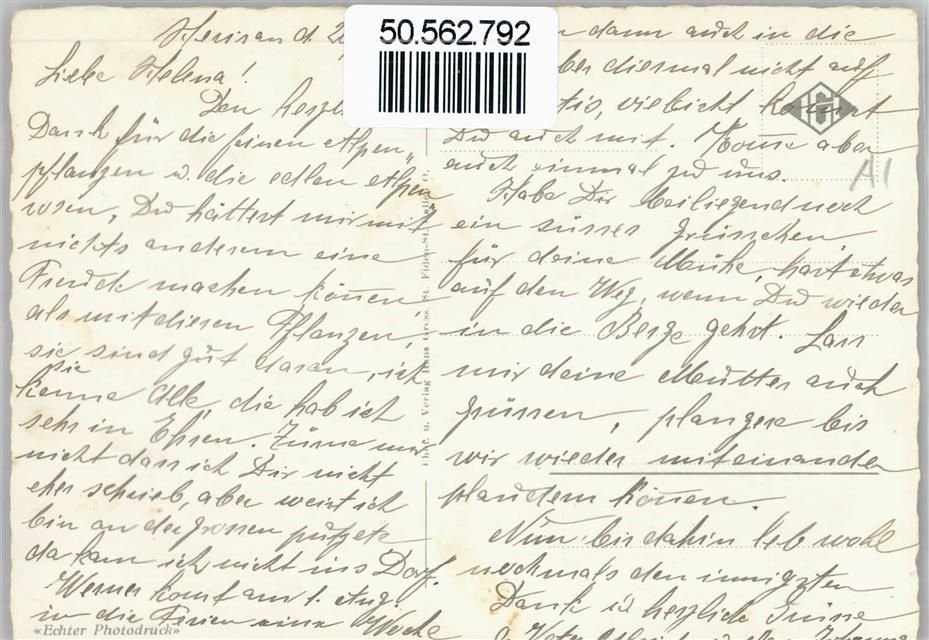 50.562.792
Herisau d. 2
Liebe Helena!
Den herzl
Dank für die feinen Alpen„
pflanzen u. die edlen Alpen
rosen, Du hättest mir mit
nichts anderem eine
Freude machen können
als mit diesen Pflanzen,
sie sind gut daran, ich
sie
kenne Alle, die hab ich
sehr in Ehren. Zürne mir
nicht dass ich Dir nicht
eher schrieb, aber weist ich
bin an der grossen putzete
da kam ich nicht ins Dorf.
Werner komt am 1. Aug.
in die Ferien eine Woche
«Echter Photodruck»
Phot. u. Verlag Hans Gross, St. Fiden-St.
dann auch in die
ber diesmal nicht auf
tis, vieleicht komst
Du auch mit. Kome aber
auch einmal zu uns.
A1
Habe Dir beiliegend noch
ein süsses Grüsschen
für deine Mühe, hast etwas
auf den Weg, wenn Du wieder
in die Berge gehst. Lass
mir deine Mutter auch
grüssen, plangere bis
wir wieder miteinander
plaudern können.
Nun bis dahin leb wohl
nochmals den innigsten
Dank u herzliche Grüsse